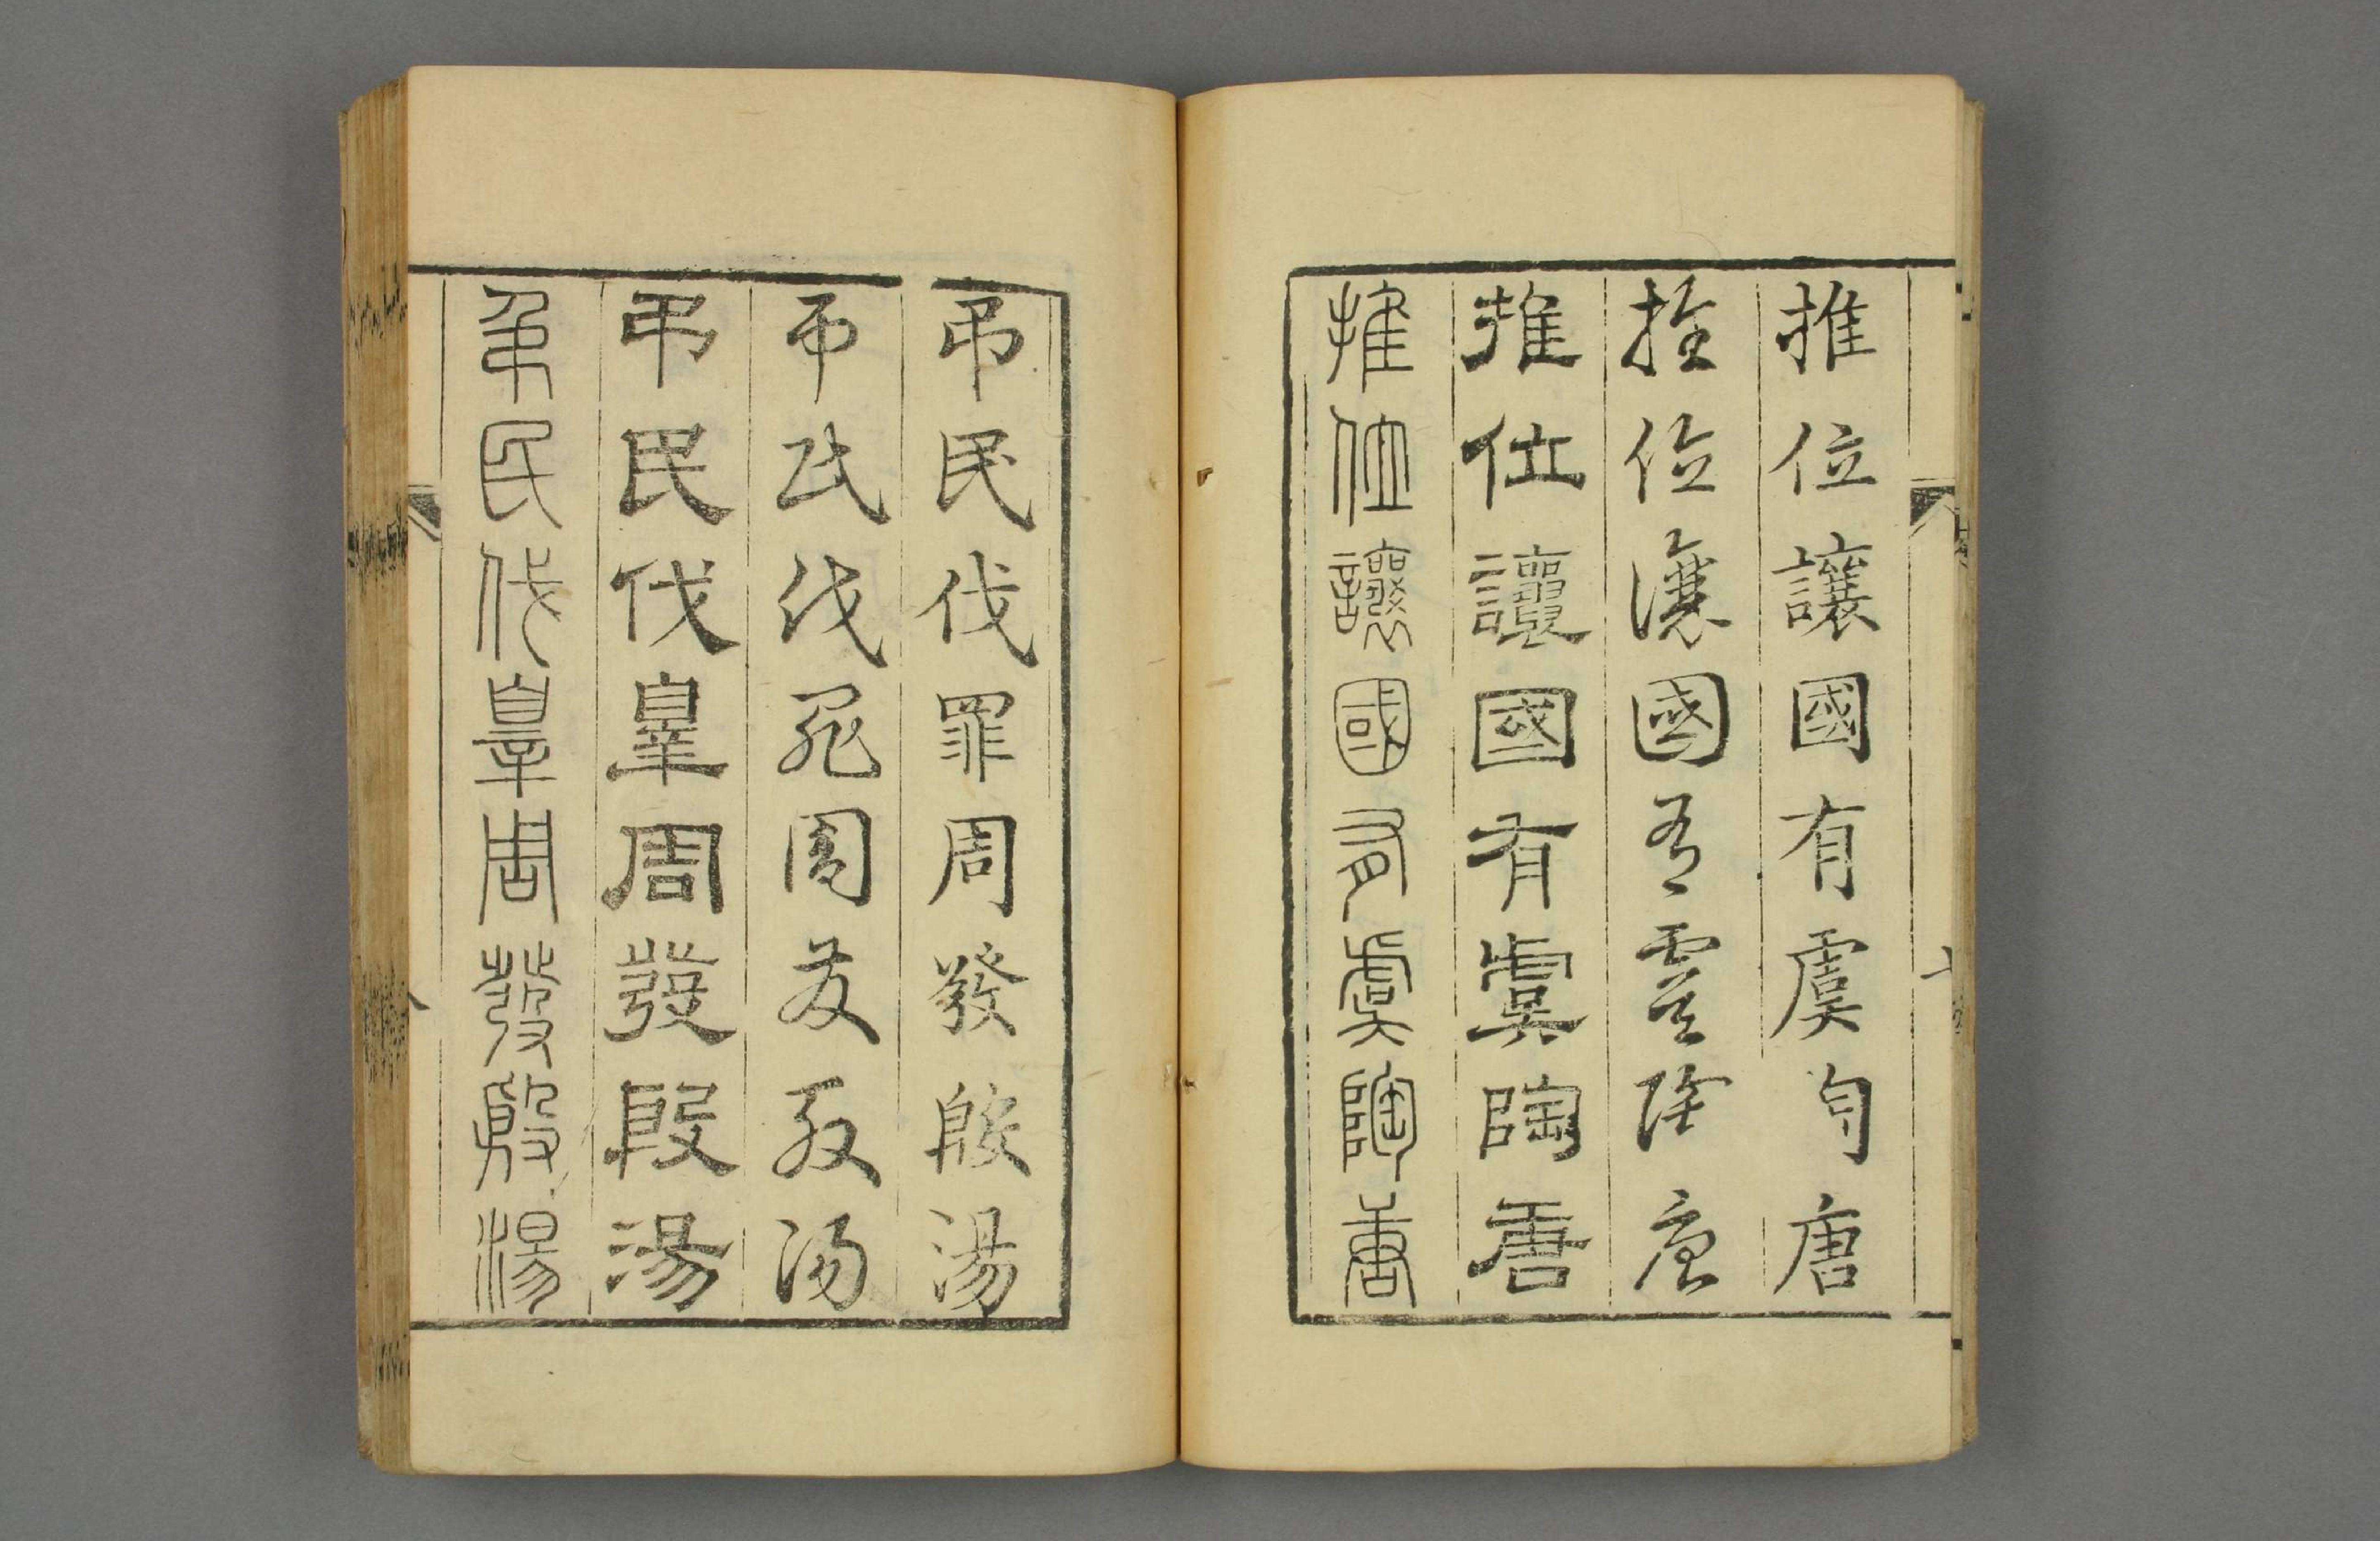 推位讓國有虞陶唐
推位讓國有虞陶唐
推位讓國有虞陶唐
推位讓國有虞陶唐
吊民伐罪周發殷湯
弔民伐罪周發殷湯
弔民伐辠周發殷湯
弔民伐辠周發殷湯